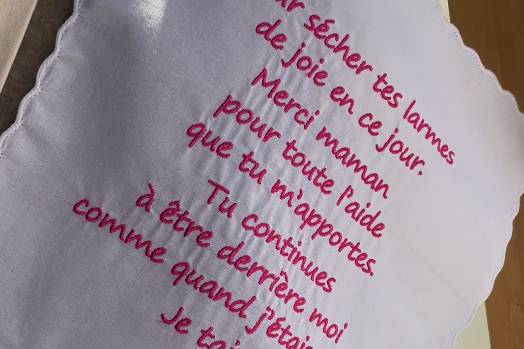 sécher tes larmes
de joie en ce jour.
Merci maman
pour toute l'aide
que tu m'apportes.
Tu continues
à être derrière moi
comme quand
Je